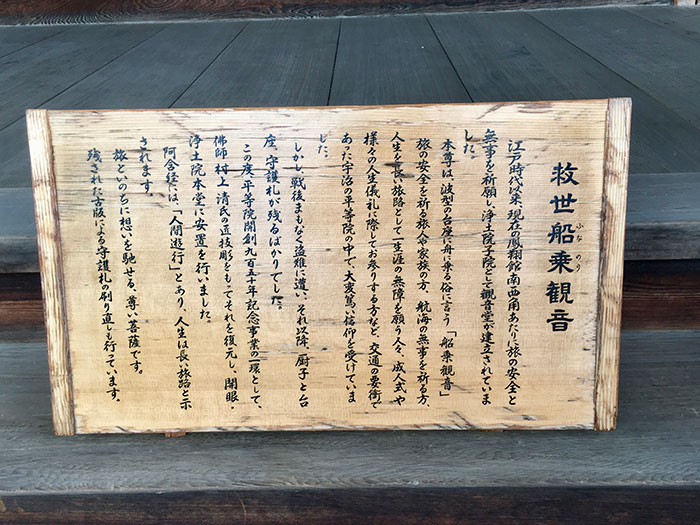 救世船乗観音
ふな のり
江戸時代以来、現在の鳳翔館南西角あたりに旅の安全と
無事を祈願し、浄土院子院として観音堂が建立されていま
した。
本尊は、波型の台座に舟に乗る俗に言う「船乗観音」
旅の安全を祈る旅人や家族の方、航海の無事を祈る方、
人生を長い旅路として一生涯の無障を願う人々、成人式や
様々の人生儀礼に際してお参りする方など、交通の要衝で
あった宇治の平等院の中で、大変篤い信仰を受けていま
した。
しかし、戦後まもなく盗難に遭い、それ以降、厨子と台
座、守護札が残るばかりでした。
この度、平等院開創九百五十年記念事業の一環として、
佛師 村上清氏の直技彫をもってそれを復元し、開眼・
浄土院本堂に安置を行いました。
阿含経には、「人間遊行」とあり、人生は長い旅路と示
されます。
旅といのちに想いを馳せる、尊い菩薩です。
残された古版による守護札の刷り直しも行っています。